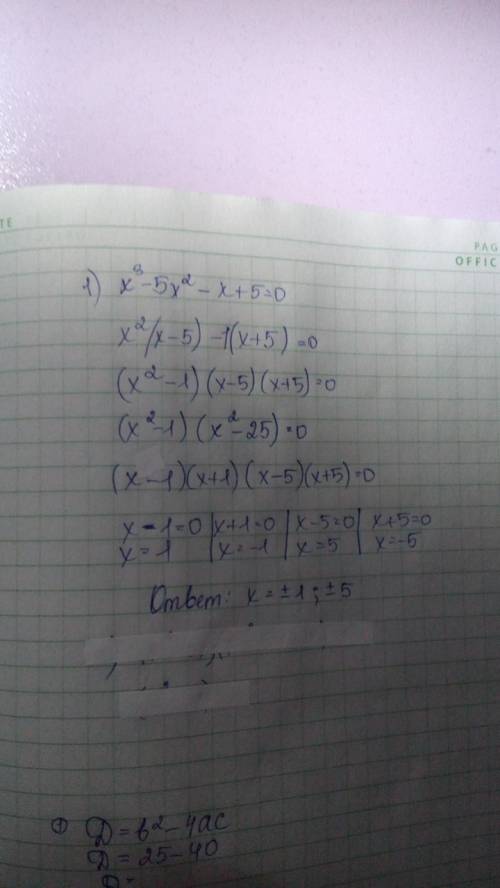 TE
PAG
OFFIC
1) x³-5x²-x+5=0
x²(x-5)-1(x+5)=0
(x²-1)(x-5)(x+5)=0
(x²-1)(x²-25)=0
(x-1)(x+1)(x-5)(x+5)=0
x-1=0 | x+1=0 | x-5=0 | x+5=0
x=1 | x=-1 | x=5 | x=-5
Ответ: x=±1; ±5
D=b²-4ac
D=25-40
D=